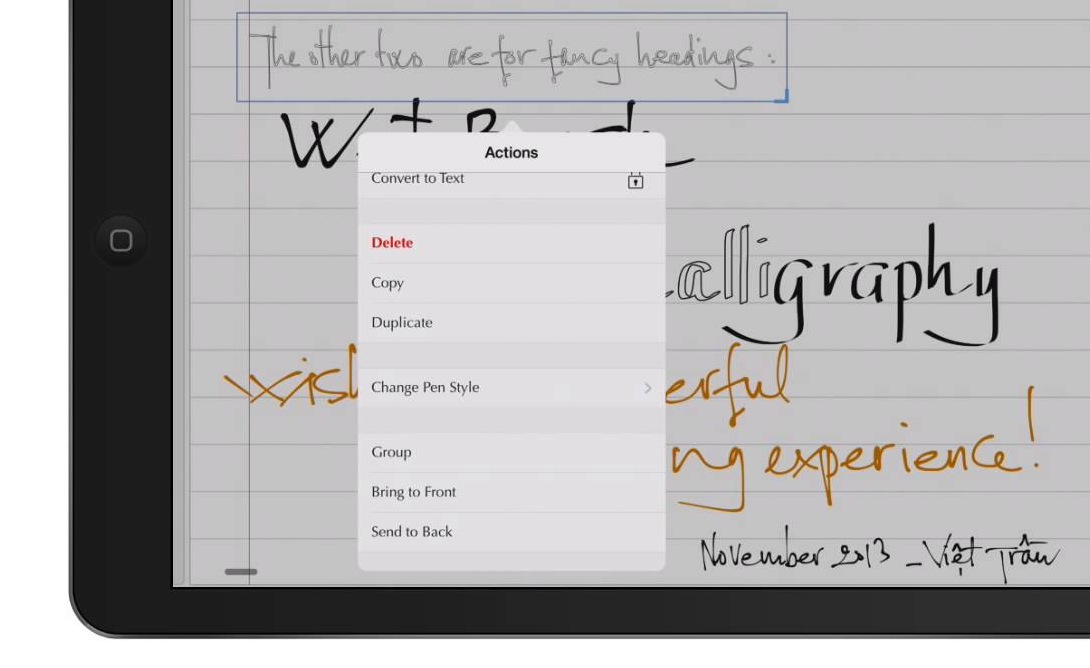 The other two are for fancy headings:
Wet Brush
Actions
Convert to Text
Delete
Copy
Duplicate
Change Pen Style
Group
Bring to Front
Send to Back
alligraphy
wis erful
ng experience!
November 2013 - Việt Trần